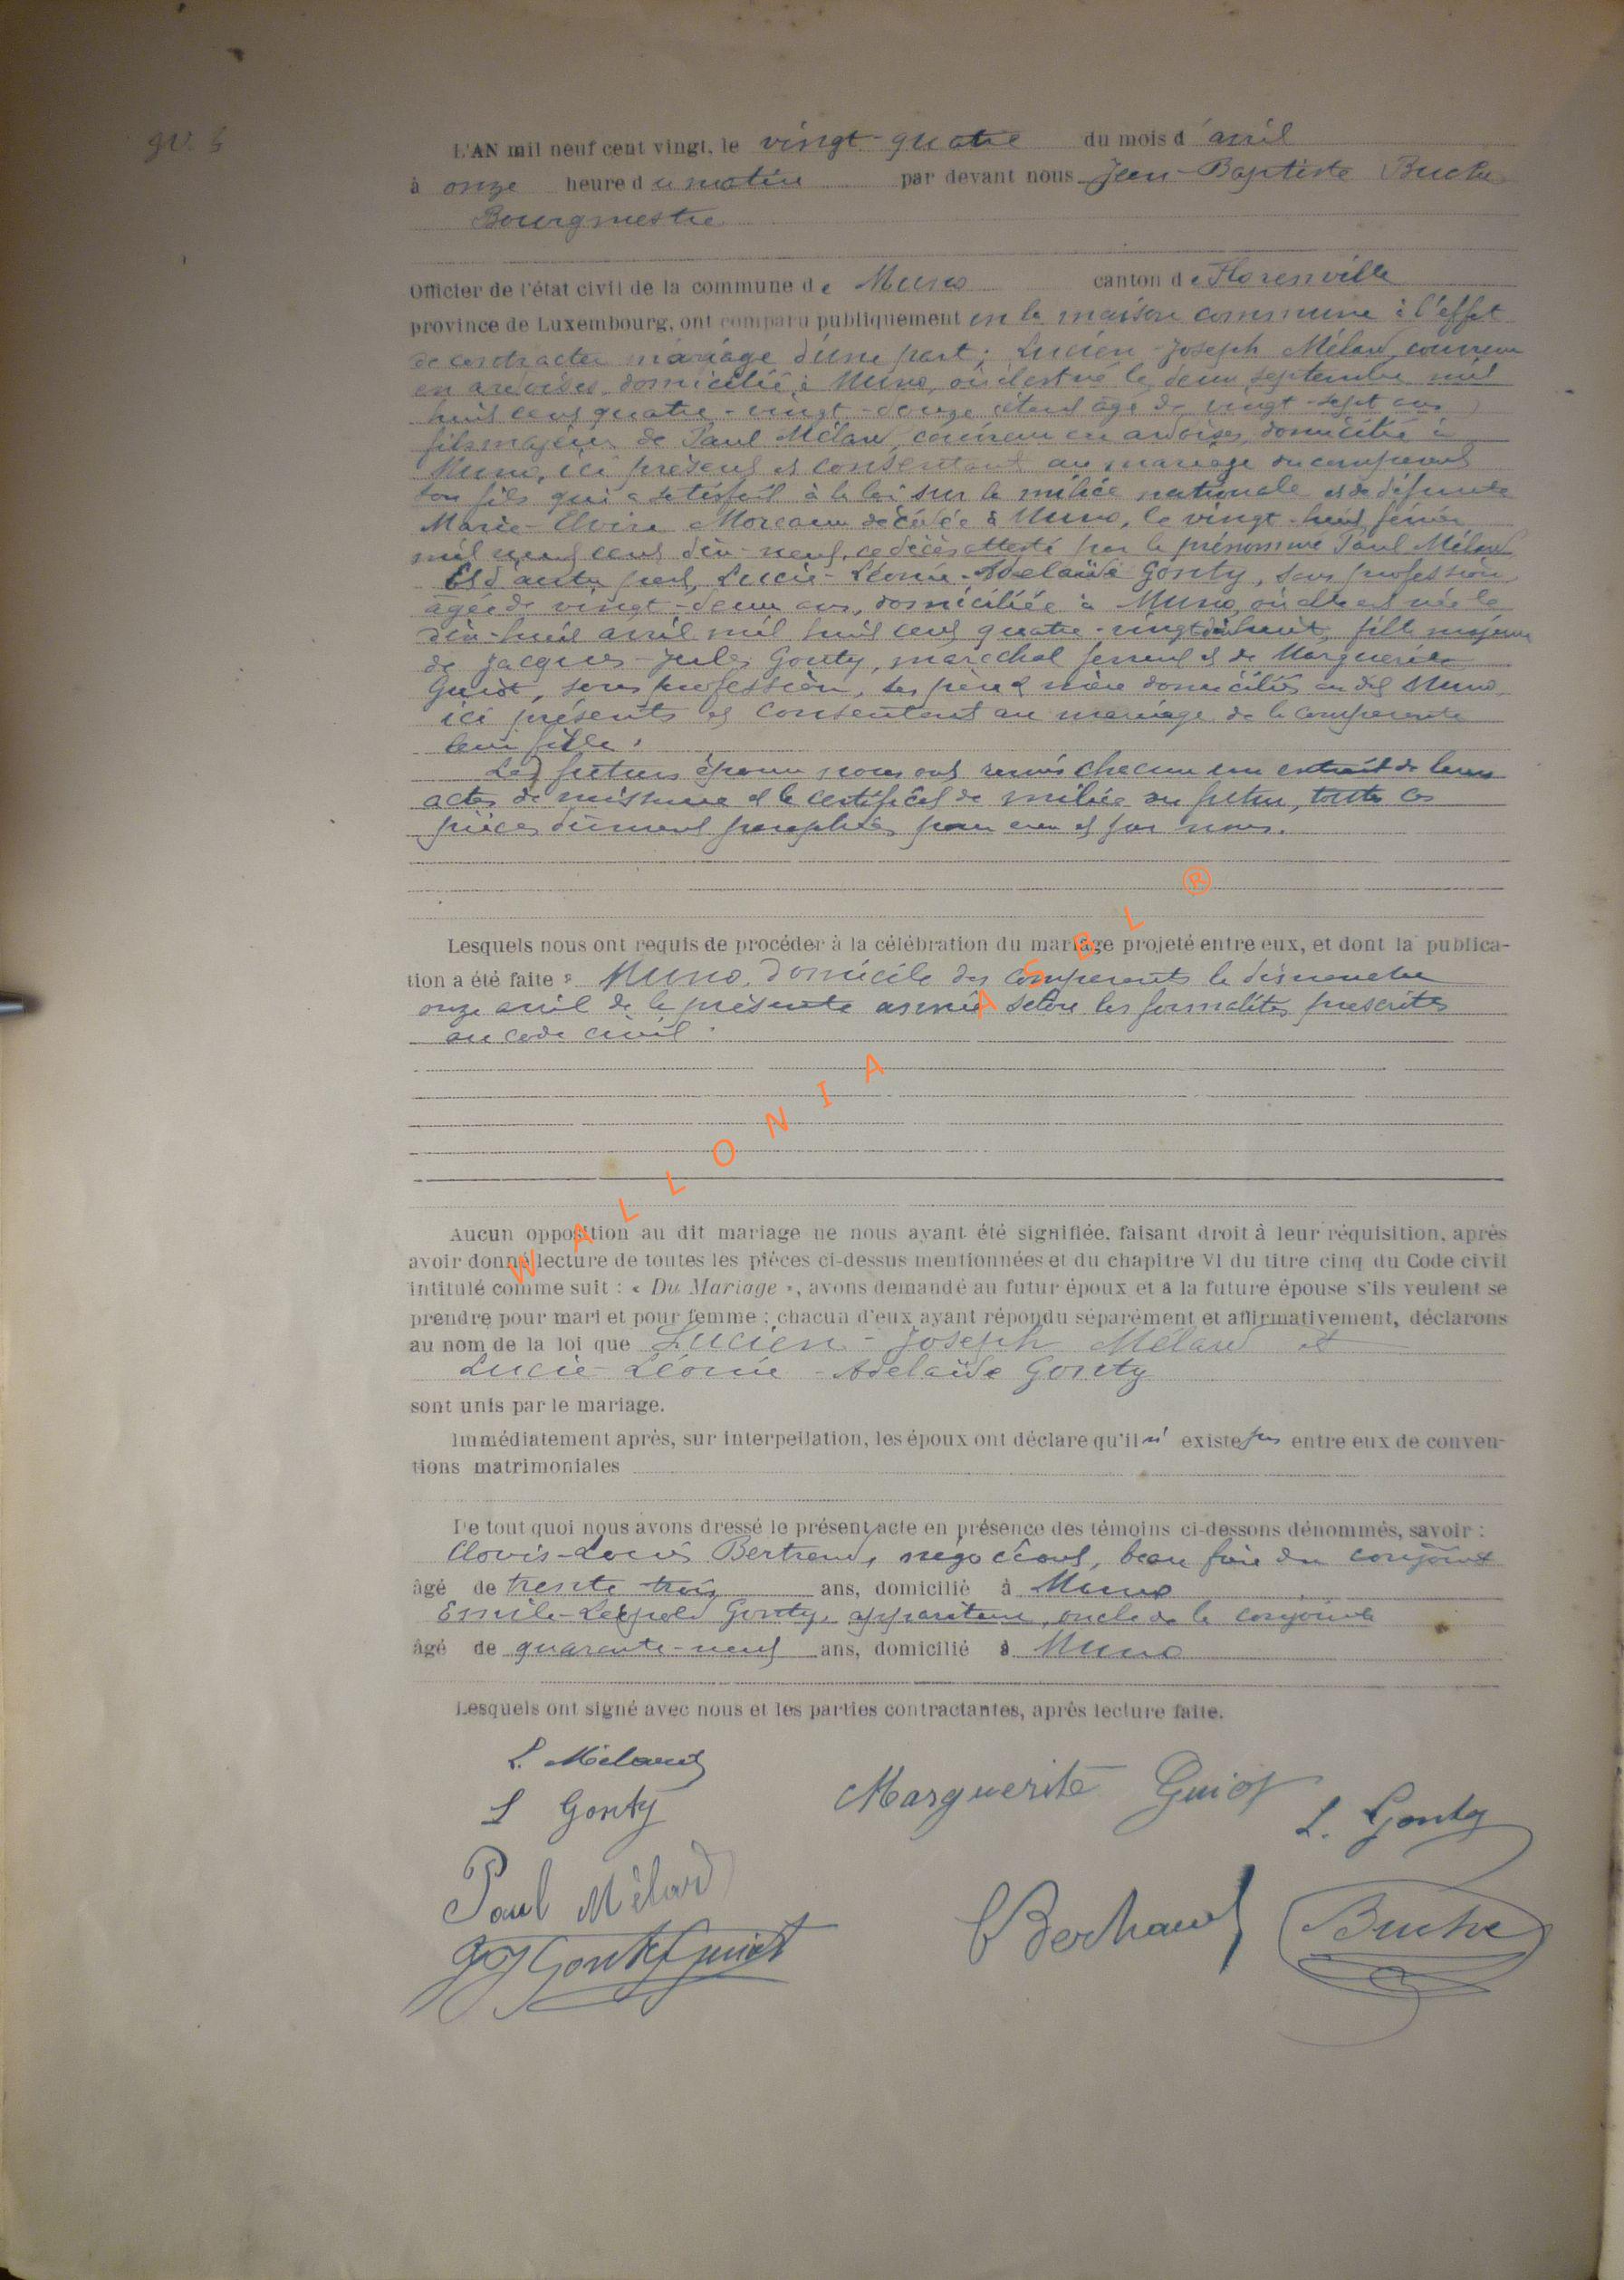 L'AN mil neuf cent vingt, le vingt-quatre du mois d'avril
à onze heure du matin par devant nous Jean-Baptiste Buche
Bourgmestre
Officier de l'état civil de la commune de Muno canton de Florenville
province de Luxembourg, ont comparu publiquement en la maison commune à l'effet
de contracter mariage d'une part; Lucien Joseph Mélard, couvreur
en ardoises, domicilié à Muno, où il est né le deux septembre mil
huit cent quatre-vingt-douze étant âgé de vingt-sept ans
fils majeur de Paul Mélard, couvreur en ardoises, domicilié à
Muno, ici présent et consentant au mariage du comparant
son fils qui a satisfait à la loi sur la milice nationale et de défunte
Marie-Elvire Moreaux décédée à Muno, le vingt-huit février
mil neuf cent dix-neuf, ce décès attesté par le prénommé Paul Mélard
Et d'autre part, Lucie-Léonie-Adelaïde Gonty, sans profession,
âgée de vingt-deux ans, domiciliée à Muno, où elle est née le
dix-huit avril mil huit cent quatre-vingt dix huit, fille majeure
de Jacques-Jules Gonty, maréchal ferrant et de Marguerite
Guiot, sans profession, ses père et mère domiciliés au dit Muno,
ici présents et consentant au mariage de la comparante
leur fille.
Les futurs époux nous ont remis chacun un extrait de leurs
actes de naissance et le certificat de milice du futur, toutes ces
pièces dûment paraphées par eux et par nous.
Lesquels nous ont requis de procéder à la célébration du mariage projeté entre eux, et dont la publica-
tion a été faite à Muno, domicile des comparants le dimanche
onze avril de la présente année selon les formalités prescrites
au code civil.
WALLONIA ASBL ®
Aucun opposition au dit mariage ne nous ayant été signifiée, faisant droit à leur réquisition, après
avoir donné lecture de toutes les pièces ci-dessus mentionnées et du chapitre VI du titre cinq du Code civil
intitulé comme suit : « Du Mariage », avons demandé au futur époux et a la future épouse s'ils veulent se
prendre pour mari et pour femme ; chacun d'eux ayant répondu séparément et affirmativement, déclarons
au nom de la loi que Lucien-Joseph Mélard et
Lucie-Léonie-Adelaïde Gonty
sont unis par le mariage.
Immédiatement après, sur interpellation, les époux ont déclare qu'il n' existe pas entre eux de conven-
tions matrimoniales
De tout quoi nous avons dressé le présent acte en présence des témoins ci-dessons dénommés, savoir :
Clovis-Louis Bertrand, négociant, beau frère du conjoint
âgé de trente trois ans, domicilié à Muno
Emile-Léopold Gonty, appariteur, oncle de la conjointe
âgé de quarante-neuf ans, domicilié à Muno
Lesquels ont signé avec nous et les parties contractantes, après lecture faite.
L. Mélard
L Gonty
Marguerite Guiot
L. Gonty
Paul Mélard
JJ Gonty Guiot
C Bertrand
Buche